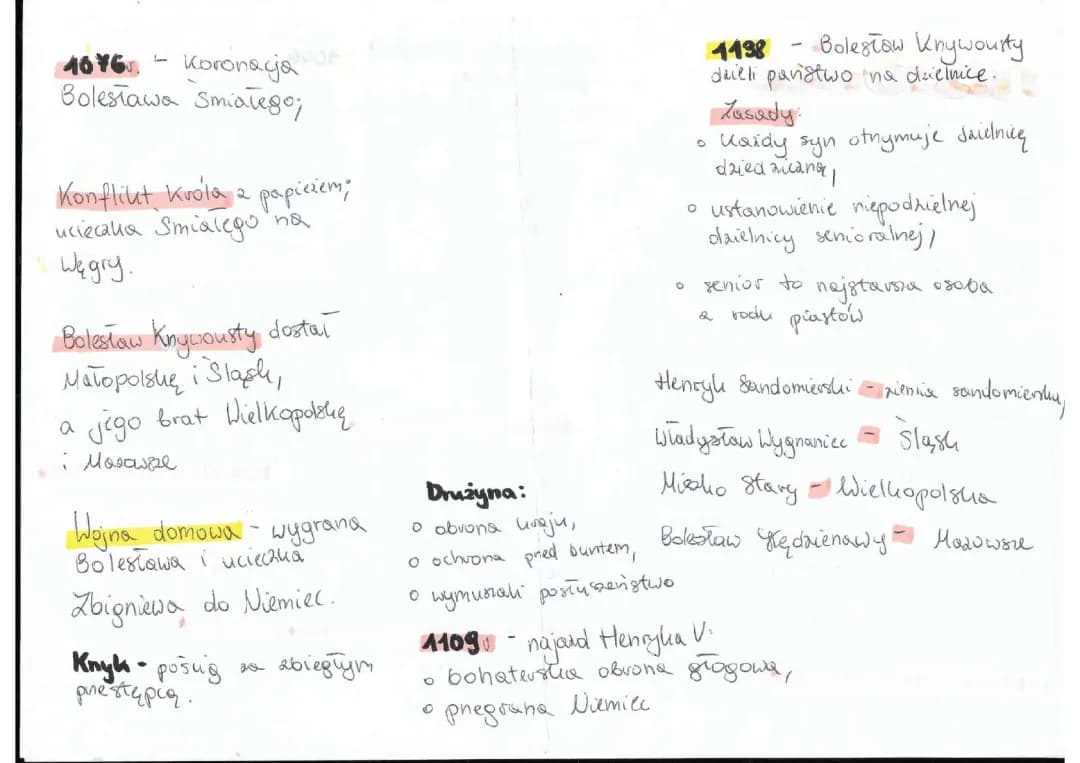 1076r. - Koronacja
Bolesława Śmiałego;
Konflikt króla z papieżem;
ucieczka Śmiałego na
Węgry.
Bolesław Krzywousty dostał
Małopolskę i Śląsk,
a jego brat Wielkopolskę
i Mazowsze
Wojna domowa - wygrana
Bolesława i ucieczka
Zbigniewa do Niemiec.
Krzyk - pościg za zbiegłym
przestępcą.
Drużyna:
o obrona kraju,
o ochrona przed buntem,
o wymuszali posłuszeństwo
1109r - najazd Henryka V:
o bohaterska obrona głogowa,
o przegrana Niemiec
1138 - Bolesław Krzywousty
dzieli państwo na dzielnice.
Zasady:
o każdy syn otrzymuje dzielnicę
dziedziczną,
o ustanowienie niepodzielnej
dzielnicy senioralnej,
o senior to najstarsza osoba
z rodu piastów
Henryk Sandomierski - ziemia sandomierska,
Władysław Wygnaniec - Śląsk
Mieszko Stary - Wielkopolska
Bolesław Kędzierzawy - Mazowsze